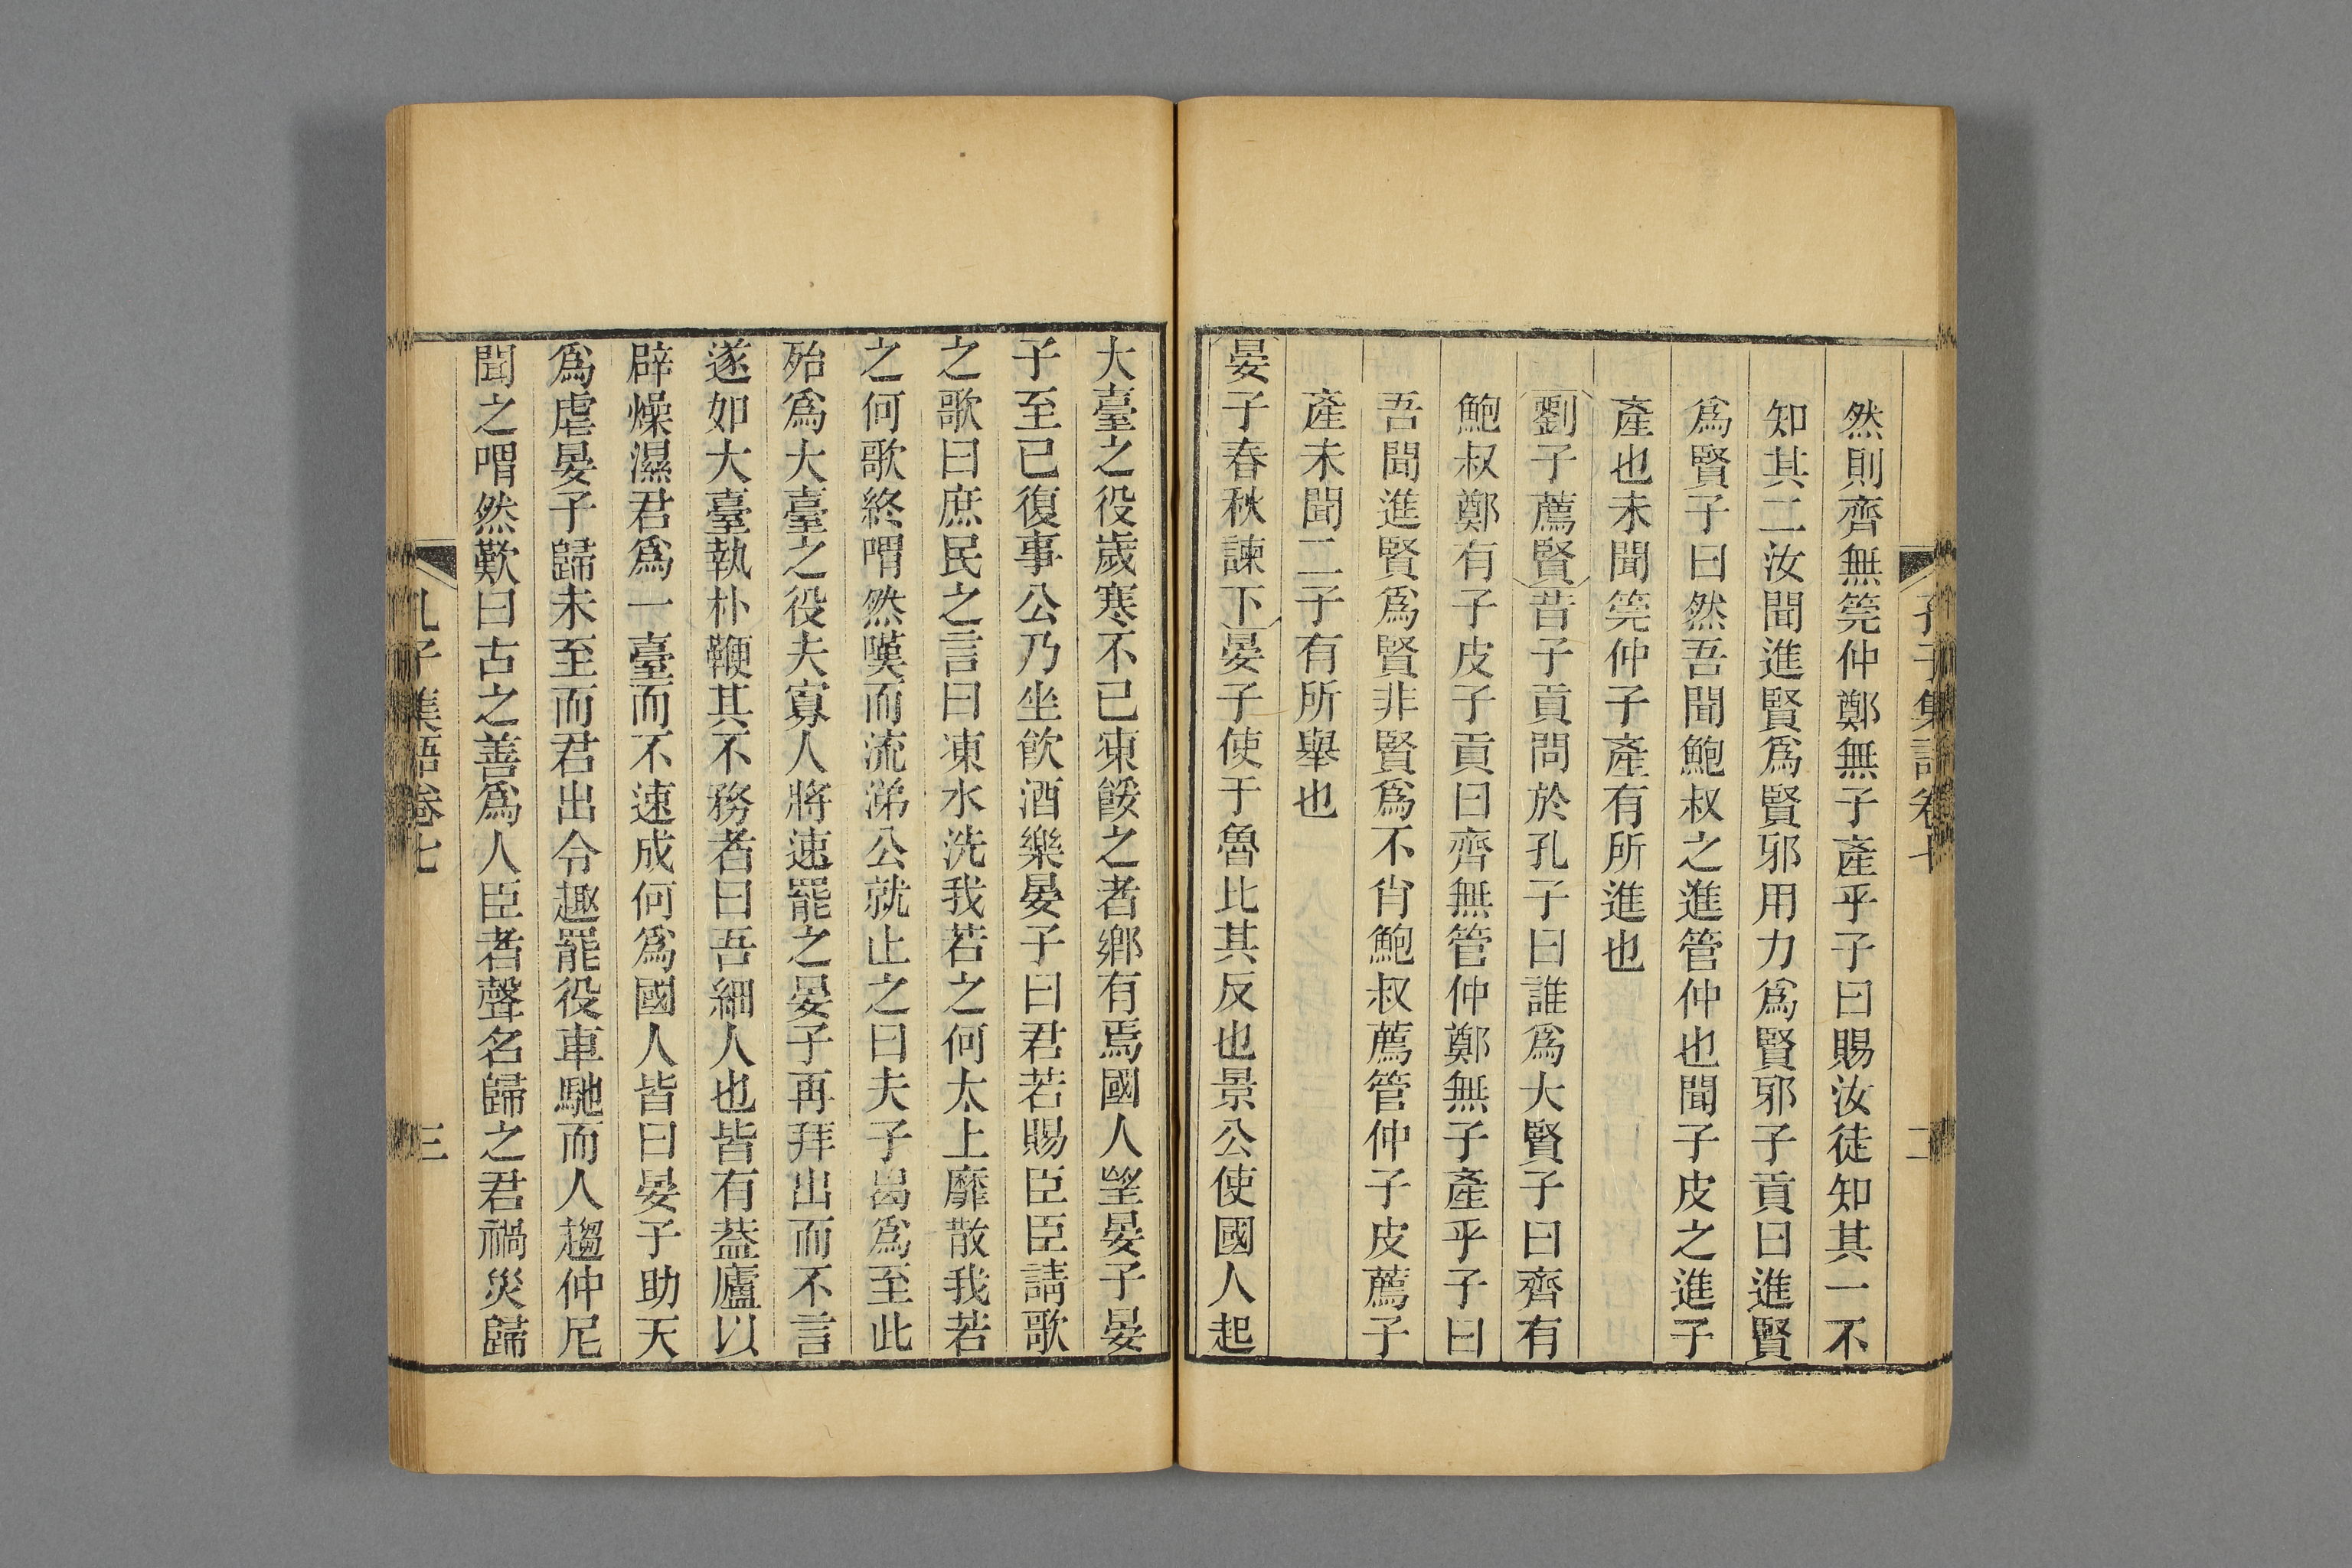 孔子集語卷七
二
然則齊無筦仲鄭無子產乎子曰賜汝徒知其一不
知其二汝聞進賢爲賢邪用力爲賢邪子貢曰進賢
爲賢子曰然吾聞鮑叔之進管仲也聞子皮之進子
產也未聞筦仲子產有所進也
劉子薦賢昔子貢問於孔子曰誰爲大賢子曰齊有
鮑叔鄭有子皮子貢曰齊無管仲鄭無子產乎子曰
吾聞進賢爲賢非賢爲不肖鮑叔薦管仲子皮薦子
產未聞二子有所舉也
晏子春秋諫下晏子使于魯比其反也景公使國人起
大臺之役歲寒不已凍餒之者鄉有焉國人望晏子晏
子至已復事公乃坐飲酒樂晏子曰君若賜臣臣請歌
之歌曰庶民之言曰凍水洗我若之何太上靡散我若
之何歌終喟然嘆而流涕公就止之曰夫子曷爲至此
殆爲大臺之役夫寡人將速罷之晏子再拜出而不言
遂如大臺執朴鞭其不務者曰吾細人也皆有葢廬以
辟燥濕君爲一臺而不速成何爲國人皆曰晏子助天
爲虐晏子歸未至而君出令趣罷役車馳而人趨仲尼
聞之喟然歎曰古之善爲人臣者聲名歸之君禍災歸
孔子集語卷七
三